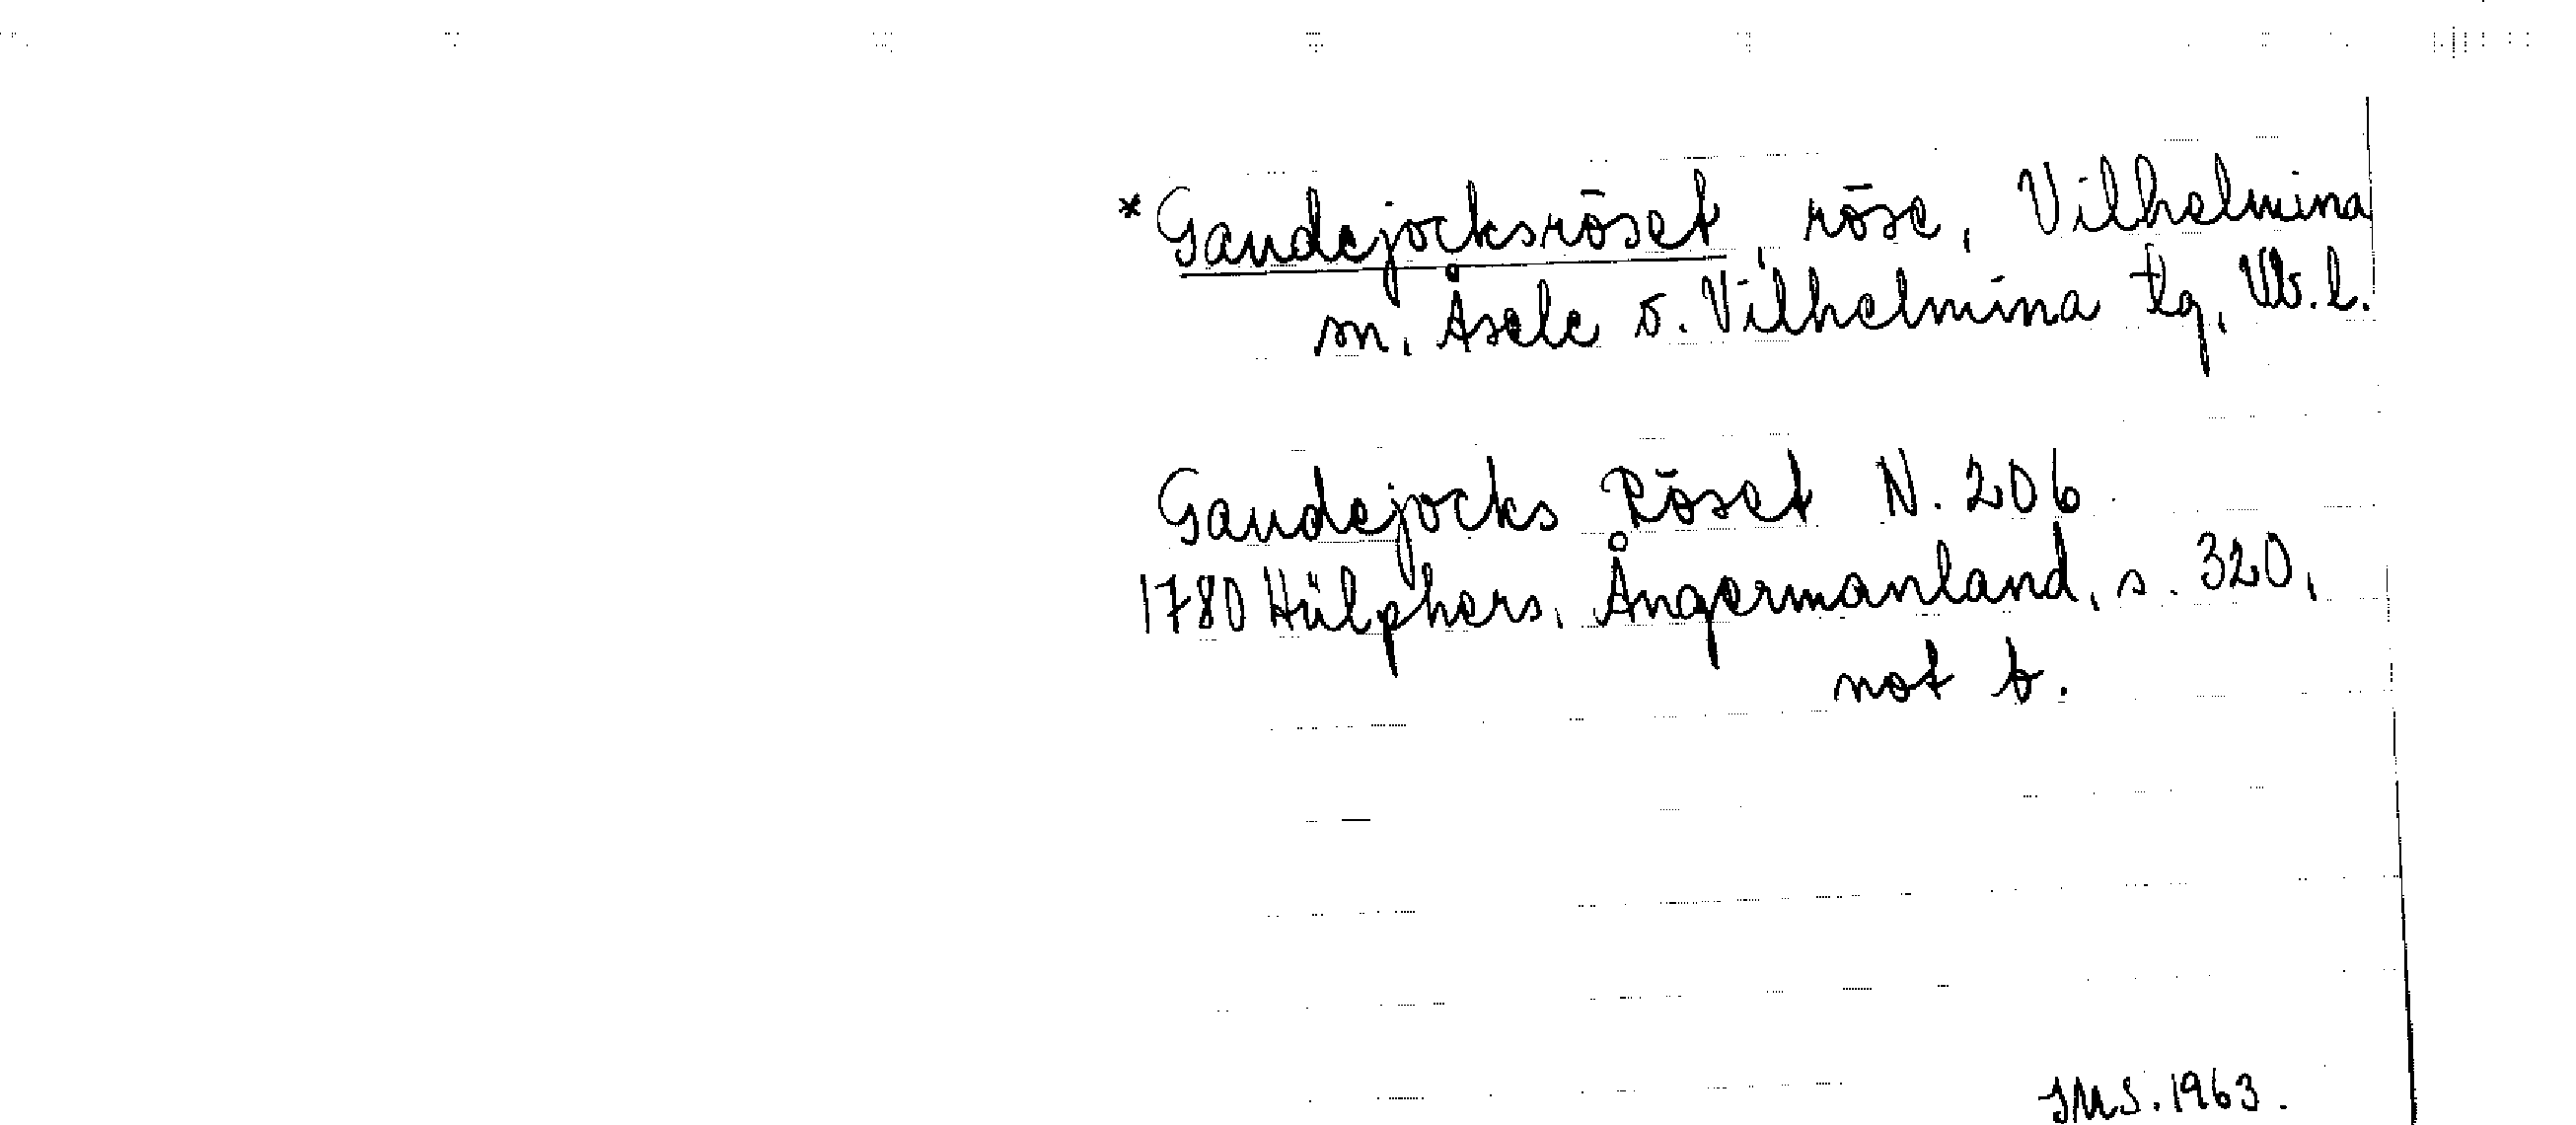 *Gaudejocksröset, röse, Vilhelmina
sn. Åsele o. Vilhelmina tg, Vb. l.
Gaudejocks Röset N. 206
1780 Hülphers, Ångermanland, s. 320,
not b.
IMS. 1963.